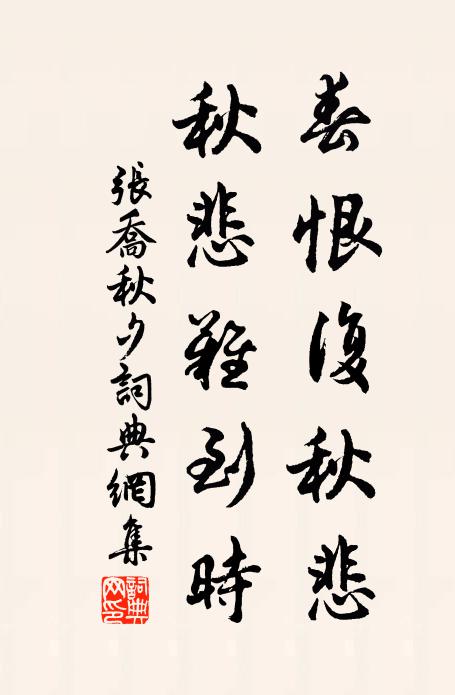 春恨復秋悲
秋悲難到時
張喬秋夕詞典網集
詞典網印